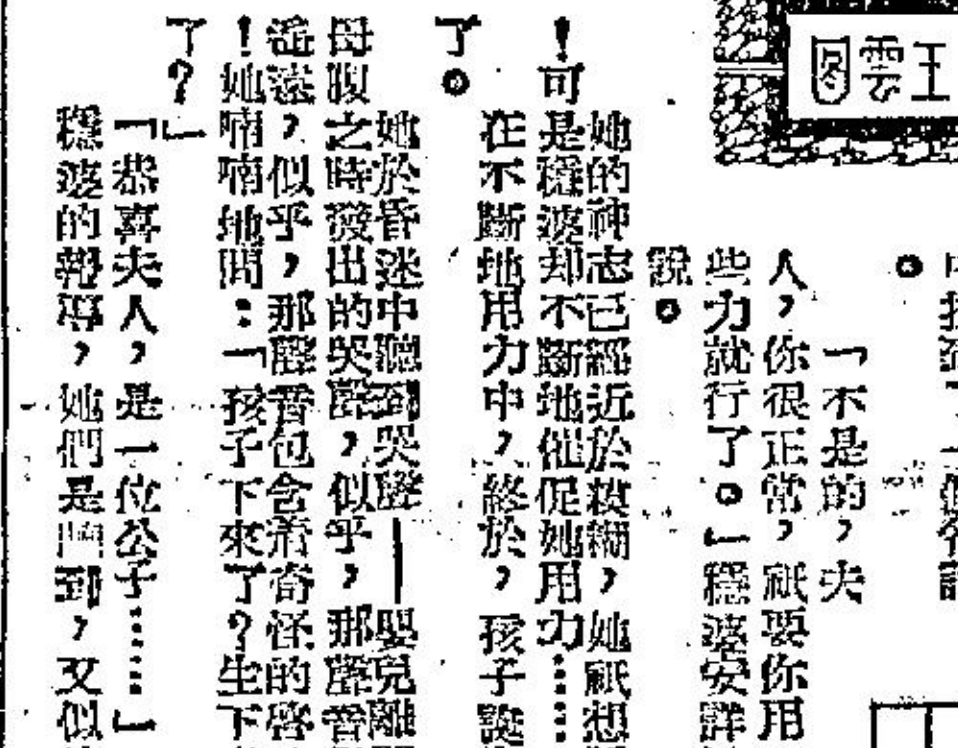 王雲圖
「不是的，夫
人，你很正常，祇要你用
些力就行了。」穩婆安詳
說。
她的神志已經近於模糊，她祇想
！可是穩婆却不斷地催促她用力……
在不斷地用力中，終於，孩子誕
了。
她於昏迷中聽到哭聲——嬰兒離
母腹之時發出的哭聲，似乎，那聲音
迷，似乎，那聲音包含着奇怪的
！她喃喃地問：「孩子下來了？生下
了？」
「恭喜夫人，是一位公子……」
穩婆的報導，她們是 到，又似